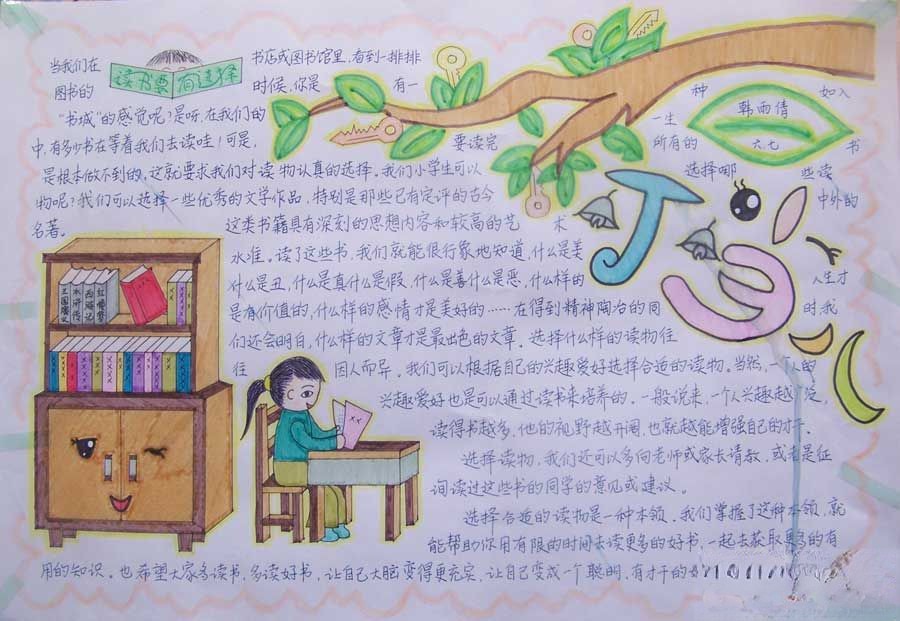 当我们在 读书要有选择 书店或图书馆里,看到一排排
图书的 时候,你是 有一 种 如入
"书城"的感觉呢?是呀,在我们的 一生 韩雨倩
中,有多少书在等着我们去读哇!可是, 要读完 所有的 六、七 书
是根本做不到的。这就要求我们对读物认真的选择。我们小学生可以 选择哪 些读
物呢?我们可以选择一些优秀的文学作品,特别是那些已有定评的古今 中外的
名著。 这类书籍具有深刻的思想内容和较高的艺 术
水准。读了这些书,我们就能很形象地知道,什么是美
什么是丑,什么是真什么是假,什么是善什么是恶,什么样的 人生才
是有价值的,什么样的感情才是美好的……在得到精神陶冶的同 时,我
们还会明白,什么样的文章才是最出色的文章。选择什么样的读物往
往 因人而异。我们可以根据自己的兴趣爱好选择合适的读物。当然,一个人的
兴趣爱好也是可以通过读书来培养的。一般说来,一个人兴趣越广泛,
读得书越多,他的视野越开阔,也就越能增强自己的才干。
选择读物,我们还可以多向老师或家长请教,或者是征
询读过这些书的同学的意见或建议。
选择合适的读物是一种本领。我们掌握了这种本领,就
能帮助你用有限的时间去读更多的好书,一起去获取更多的有
用的知识。也希望大家多读书,多读好书,让自己大脑变得更充实,让自己变成一个聪明,有才干的
三国演义
水浒传
西游记
红楼梦